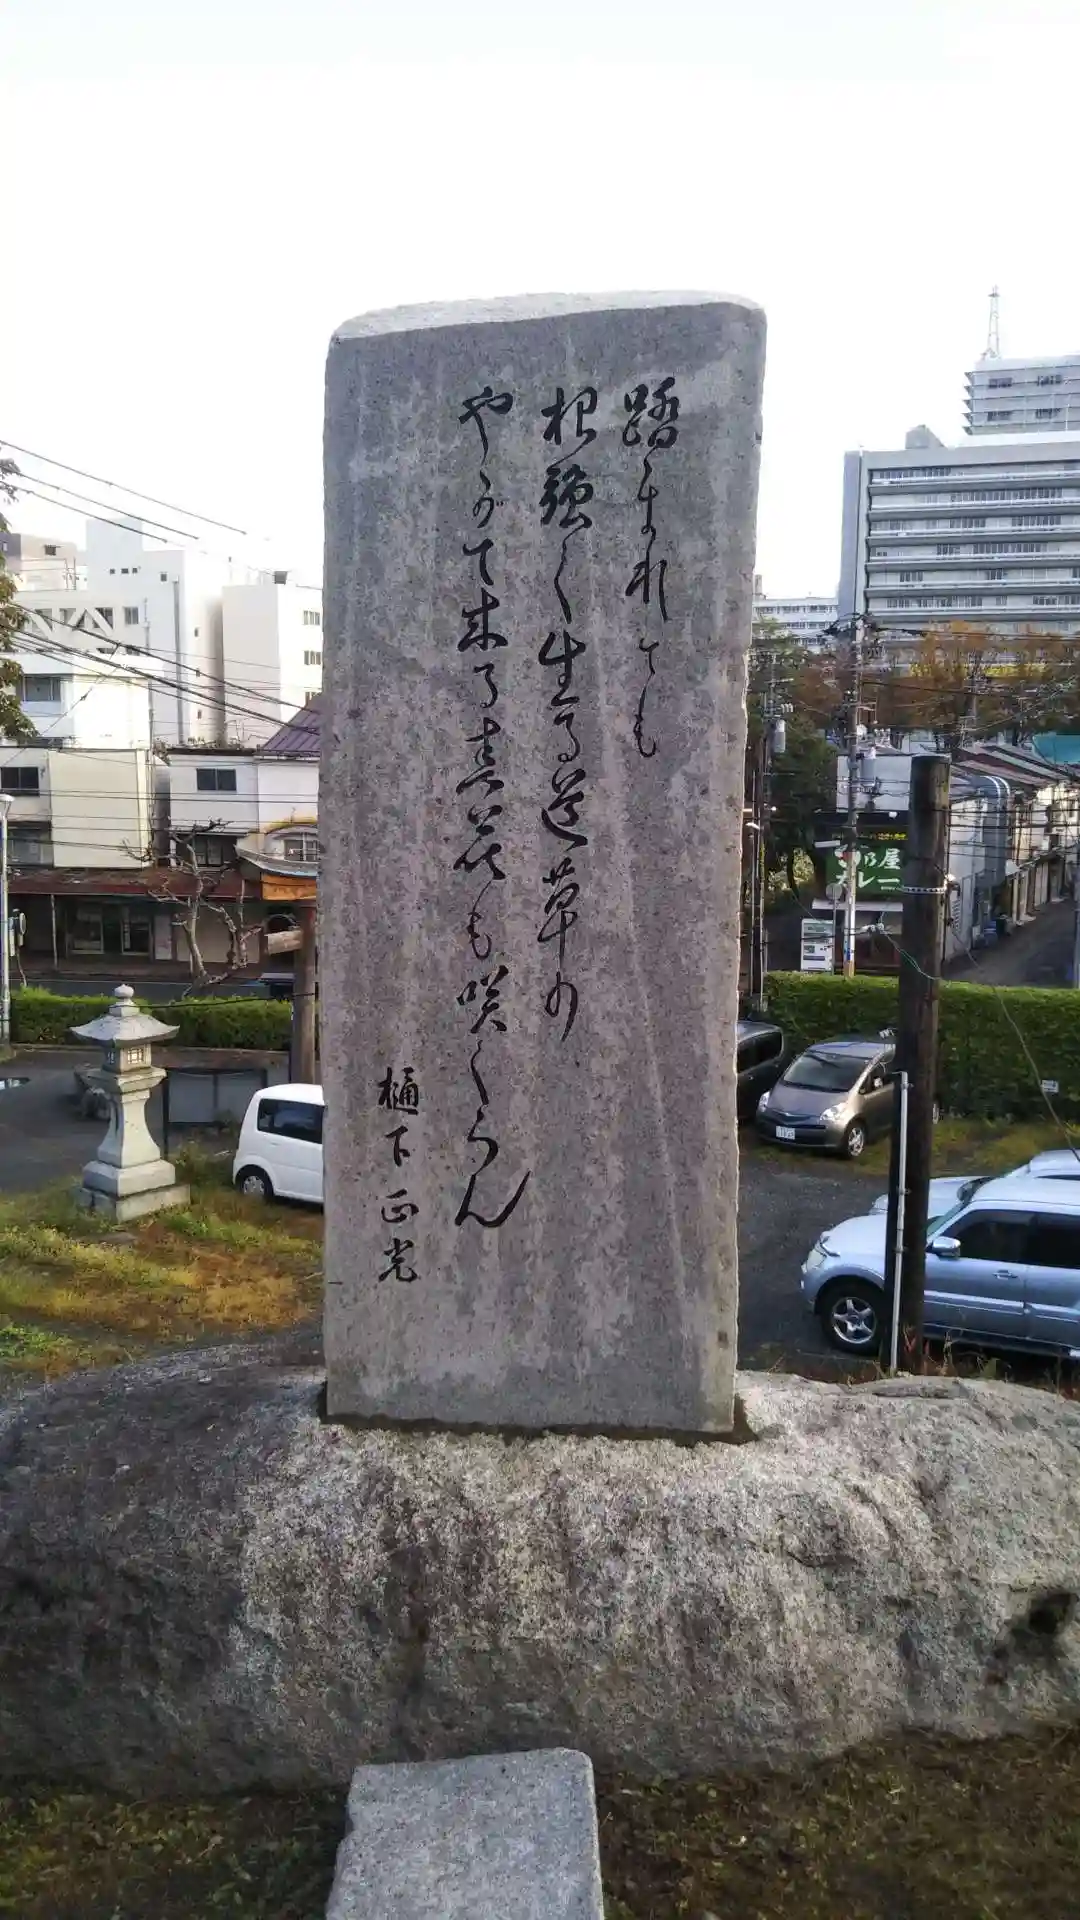 踏まれても
根強く生る道草の
やがて来る春花も咲くらん
樋下正光
日乃屋
カレー